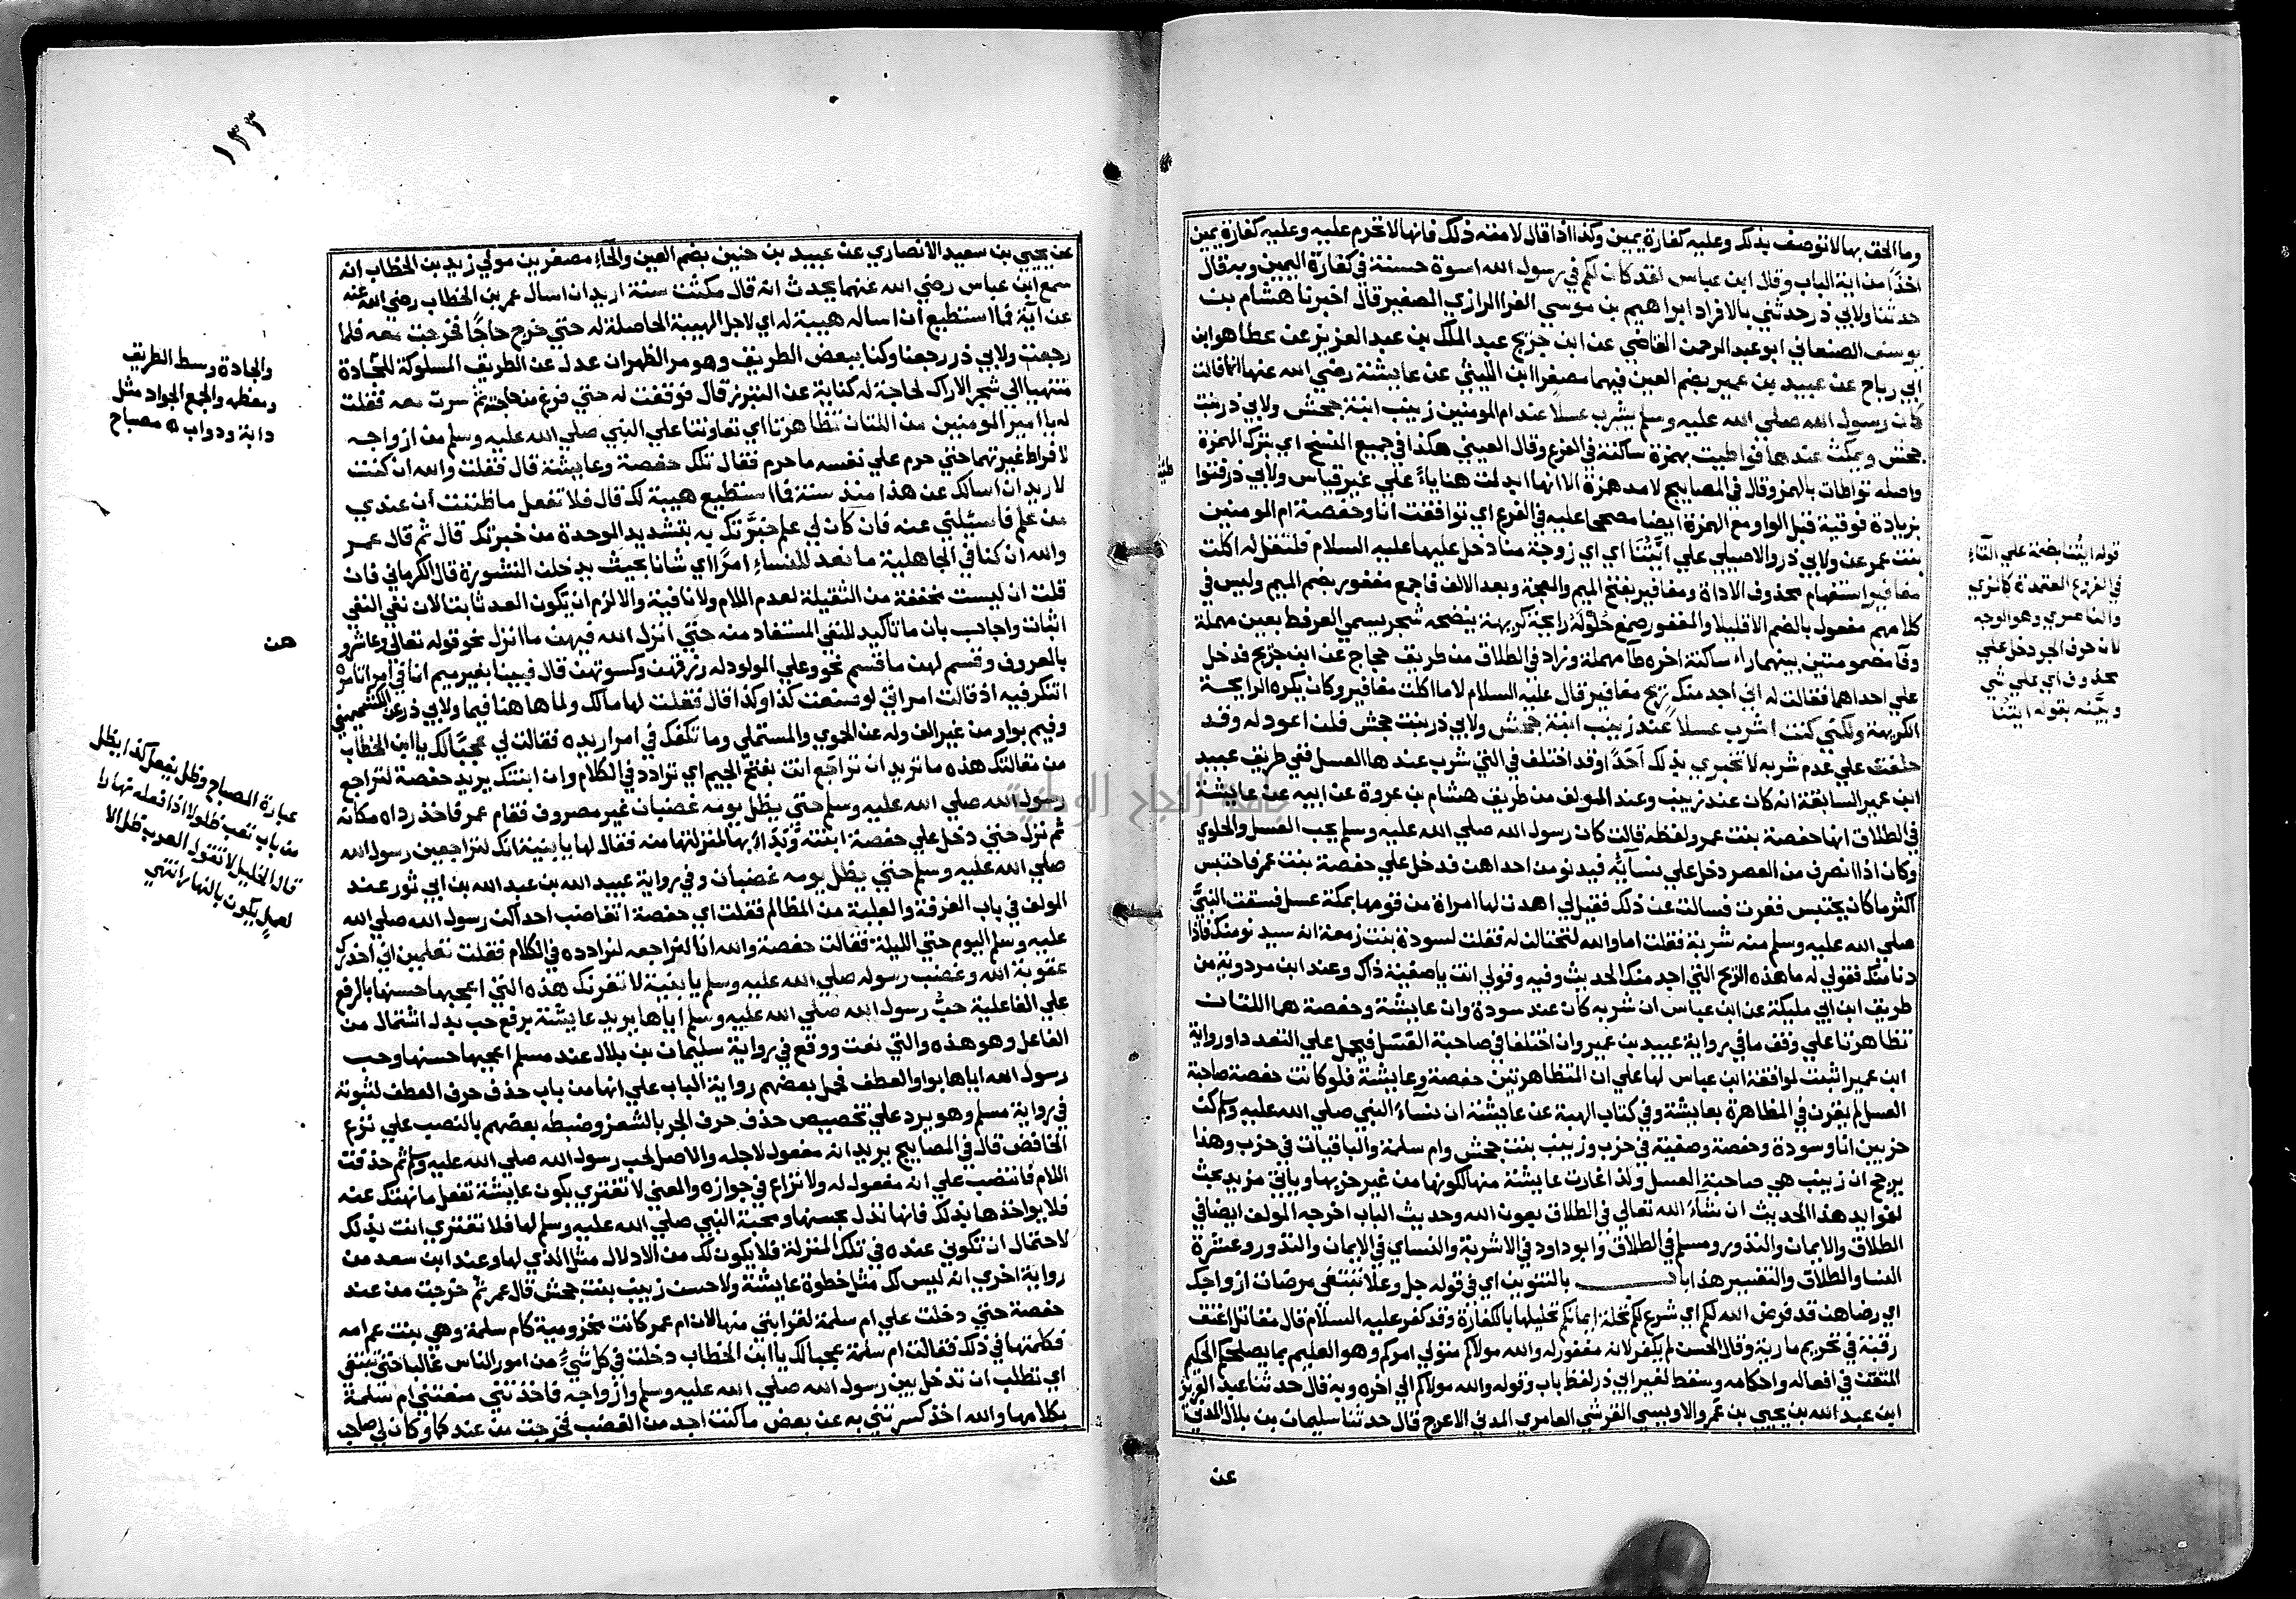 وما الحق بها لا توصف بذلك وعليه كفارة يمين وكذا اذا قال لامته ذلك فانها لا تحرم عليه وعليه كفارة يمين
اخذا من اية الباب وقال ابن عباس لقد كان لكم في رسول الله اسوة حسنة في كفارة اليمين وبه قال
حدثنا ولابي ذر حدثني بالافراد ابراهيم بن موسي الفرا الرازي الصغير قال اخبرنا هشام بن
يوسف الصنعاني ابو عبد الرحمن القاضي عن ابن جريج عبد الملك بن عبد العزيز عن عطا هو ابن
ابي رباح عن عبيد بن عمير بضم العين فيهما مصغرا ابن الليثي عن عايشة رضي الله عنها انها قالت
كان رسول الله صلي الله عليه وسلم يشرب عسلا عند ام المومنين زينب ابنة جحش ولابي ذر بنت
جحش ويمكث عندها فواطيت بهمزة ساكنة في الفرع وقال العيني هكذا في جميع النسخ اي بترك الهمزة
واصله تواطات بالهمز وقال في المصابيح لامه همزة الا انها ابدلت هنا ياءً علي غير قياس ولابي ذر فتوا
طيت
بزيادة فوقية قبل الواو مع الهمزة ايضا مصححا عليه في الفرع اي توافقت انا وحفصة ام المومنين
بنت عمر عن ولابي ذر والاصيلي علي ايَّتُنا اي اي زوجة منا دخل عليها عليه السلام فلتقل له اكلت
مغافير استفهام محذوف الاداة ومغافير بفتح الميم والمعجمة وبعد الالف فا جمع مغفور بضم الميم وليس في
كلامهم مفعول بالضم الا قليلا والمغفور صمغ حلو له رايحة كريهة ينضحه شجر يسمي العرفط بعين مهملة
وفا مضمومتين بينهما راء ساكنة اخره طا مهملة وزاد في الطلاق من طريق حجاج عن ابن جريج فدخل
علي احداهما فقالت له اني اجد منك ريح مغافير قال عليه السلام لا ما اكلت مغافير وكان يكره الرايحة
الكريهة ولكني كنت اشرب عسلا عند زينب ابنة جحش ولابي ذر بنت جحش فلن اعود له وقد
حلفت علي عدم شربه لا تخبري بذلك احدًا وقد اختلف في التي شرب عندها العسل ففي طريق عبيد
ابن عمير السابقة انه كان عند زينب وعند المولف من طريق هشام بن عروة عن ابيه عن عايشة
في الطلاق انها حفصة بنت عمر ولفظه قالت كان رسول الله صلي الله عليه وسلم يحب العسل والحلوي
وكان اذا انصرف من العصر دخل علي نسآئه فيدنو من احداهن فدخل علي حفصة بنت عمر فاحتبس
اكثر ما كان يحتبس فغرت فسالت عن ذلك فقيل لي اهدت لها امراة من قومها بمكة عسل فسقت النبي
صلي الله عليه وسلم منه شربة فقلت اما والله لنحتالن له فقلت لسودة بنت زمعة انه سيدنو منك فاذا
دنا منك فقولي له ما هذه الريح التي اجد منك الحديث وفيه وقولي انت يا صفية ذاك وعند ابن مردوية من
طريق ابن ابي مليكة عن ابن عباس ان شربه كان عند سودة وان عايشة وحفصة هما اللتان
تظاهرتا علي وفق ما في رواية عبيد بن عمير وان اختلفا في صاحبة العسل فيحمل علي التعدد او رواية
ابن عمير اثبت لموافقة ابن عباس لها علي ان المتظاهرتين حفصة وعايشة فلو كانت حفصة صاحبة
العسل لم يقرن في المظاهرة بعايشة وفي كتاب الهبة عن عايشة ان نسآء النبي صلي الله عليه وسلم كن
حزبين انا وسودة وحفصة وصفية في حزب وزينب بنت جحش وام سلمة والباقيات في حزب وهذا
يرجح ان زينب هي صاحبة العسل ولذا غارت عايشة منها لكونها من غير حزبها وياتي مزيد بحث
لفوايد هذا الحديث ان شآء الله تعالي في الطلاق بعون الله وحديث الباب اخرجه المولف ايضا في
الطلاق والايمان والنذور ومسلم في الطلاق وابو داود في الاشربة والنساي في الايمان والنذور وعشرة
النسا والطلاق والتفسير هذا باب بالتنوين اي في قوله جل وعلا تبتغي مرضات ازواجك
اي رضاهن قد فرض الله لكم اي شرع لكم تحلة ايمانكم تحليلها بالكفارة وقد كفر عليه السلام قال مقاتل اعتق
رقبة في تحريم مارية وقال الحسن لم يكفر لانه مغفور له والله مولاكم متولي اموركم وهو العليم بما يصلحكم الحكيم
المتقن في افعاله واحكامه وسقط لغير ابي ذر لفظ باب وقوله والله مولاكم الي اخره وبه قال حدثنا عبد العزيز
ابن عبد الله بن يحيي بن عمرو الاويسي القرشي العامري المدني الاعرج قال حدثنا سليمان بن بلال المدني
عن
قوله ايتنا بضمة علي التاء
في الفروع المعتمدة كالمزي
والناصري وهو الوجه
لان حرف الجر دخل علي
محذوف اي علي شي
وبيَّنه بقوله ايتنا
١٣٣
عن يحيي بن سعيد الانصاري عن عبيد بن حنين بضم العين والحاء مصغر بن مولي زيد بن الخطاب انه
سمع ابن عباس رضي الله عنهما يحدث انه قال مكثت سنة اريد ان اسال عمر بن الخطاب رضي الله عنه
عن آية فما استطيع ان اساله هيبة له اي لاجل الهيبة الحاصلة له حتي خرج حاجًا فخرجت معه فلما
رجعت ولابي ذر رجعنا وكنا ببعض الطريق وهو مر الظهران عدل عن الطريق المسلوكة للجادة
منتهيا الي شجر الاراك لحاجة له كناية عن التبرز قال فوقفت له حتي فرغ من حاجته ثم سرت معه فقلت
له يا امير المومنين من اللتان تظاهرتا اي تعاونتا علي النبي صلي الله عليه وسلم من ازواجه
لافراط غيرتهما حتي حرم علي نفسه ما حرم فقال تلك حفصة وعايشة قال فقلت والله ان كنت
لاريد ان اسالك عن هذا منذ سنة فما استطيع هيبة لك قال فلا تفعل ما ظننت ان عندي
من علم فاسئلني عنه فان كان لي علم خبَّرتك به بتشديد الموحدة من خبرتك قال ثم قال عمر
والله ان كنا في الجاهلية ما نعد للنساء امرًا اي شانا بحيث يدخلن المشورة قال الكرماني فان
قلت ان ليست مخففة من الثقيلة لعدم اللام ولا نافية والا لزم ان يكون العد ثابتا لان نفي النفي
اثبات واجاب بان ما تاكيد للنفي المستفاد منه حتي انزل الله فيهن ما انزل نحو قوله تعالي وعاشرو
هن
بالمعروف وقسم لهن ما قسم نحو وعلي المولود له رزقهن وكسوتهن قال فبينا بغير ميم انا في امر اتامره
اتفكر فيه اذ قالت امراتي لو صنعت كذا وكذا قال فقلت لها مالك ولما هاهنا فيما ولابي ذر عن الكشميهني
وفيم بواو من غير الف وله عن الحموي والمستملي وما تكلفك في امر اريده فقالت لي عجبًا لك يا ابن الخطاب
من مقالتك هذه ما تريد ان تراجَع انت بفتح الجيم اي ترادد في الكلام وان ابنتك يريد حفصة لتراجع
رسول الله صلي الله عليه وسلم حتي يظل يومه غضبان غير مصروف فقام عمر فاخذ رداه مكانه
ثم نزل حتي دخل علي حفصة ابنته وبدا بها لمنزلتها منه فقال لها يا بنية انك لتراجعين رسول الله
صلي الله عليه وسلم حتي يظل يومه غضبان وفي رواية عبيد الله بن عبد الله بن ابي ثور عند
المولف في باب الغرفة والعلية من المظالم فقلت اي حفصة اتغاضب احداكن رسول الله صلي الله
عليه وسلم اليوم حتي الليلة فقالت حفصة والله انا لنراجعه لنرادده في الكلام فقلت تعلمين اني احذرك
عقوبة الله وغضب رسوله صلي الله عليه وسلم يا بنية لا تغرنك هذه التي اعجبها حسنها بالرفع
علي الفاعلية حبُّ رسول الله صلي الله عليه وسلم اياها يريد عايشة برفع حب بدل اشتمال من
الفاعل وهو هذه والتي نعت ووقع في رواية سليمان بن بلال عند مسلم اعجبها حسنها وحب
رسول الله اياها بواو العطف فحمل بعضهم رواية الباب علي انها من باب حذف حرف العطف لثبوته
في رواية مسلم وهو يرد علي تخصيص حذف حرف الجر بالشعر وضبطه بعضهم بالنصب علي نزع
الخافض قال في المصابيح يريد انه مفعول لاجله والاصل لحب رسول الله صلي الله عليه وسلم ثم حذفت
اللام فانتصب علي انه مفعول له ولا نزاع في جوازه والمعني لا تغتري بكون عايشة تفعل ما نهيتك عنه
فلا يواخذها بذلك فانها تدل بحسنها ومحبة النبي صلي الله عليه وسلم لها فلا تغتري انت بذلك
لاحتمال ان تكوني عنده في تلك المنزلة فلا يكون لك من الادلال مثل الذي لها وعند ابن سعد من
رواية اخري انه ليس لك مثل حظوة عايشة ولا حسن زينب بنت جحش قال عمر ثم خرجت من عند
حفصة حتي دخلت علي ام سلمة لقرابتي منها لان ام عمر كانت مخزومية كام سلمة وهي بنت عم امه
فكلمتها في ذلك فقالت ام سلمة عجبا لك يا ابن الخطاب دخلت في كل شيء من امور الناس غالبا حتي تبتغي
اي تطلب ان تدخل بين رسول الله صلي الله عليه وسلم وازواجه فاخذتني منعتني ام سلمة
بكلامها والله اخذ كسرتني به عن بعض ما كنت اجد من الغضب فخرجت من عندها وكان لي صاحب
والجادة وسط الطريق
ومعظمه والجمع الجواد مثل
دابة ودواب ه مصباح
عبارة المصباح وظل يفعل كذا يظل
من باب تعب ظلولا اذا فعله نهارا
قال الخليل لا تقول العرب ظل الا
لعمل يكون بالنهار انتهي